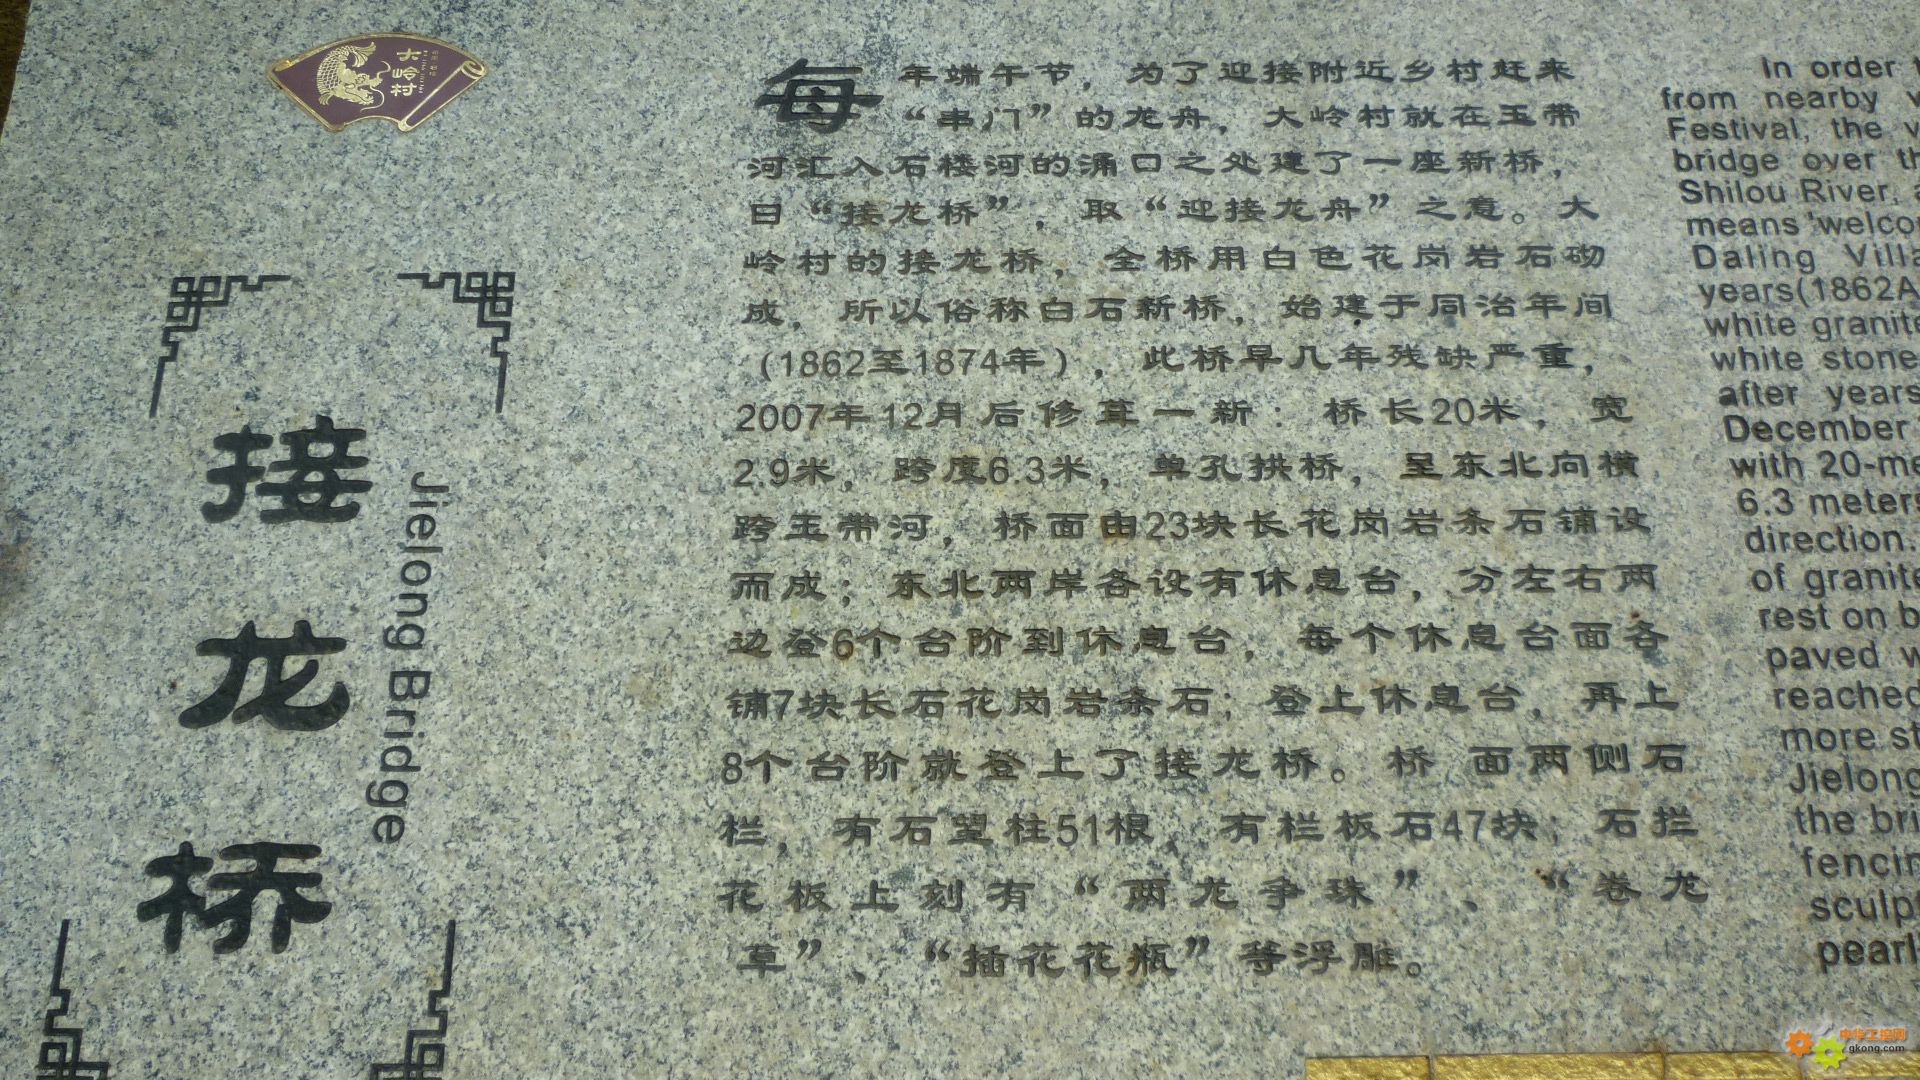 大岭村
接龙桥
Jielong Bridge
每年端午节，为了迎接附近乡村赶来
“串门”的龙舟，大岭村就在玉带
河汇入石楼河的涌口之处建了一座新桥，
曰“接龙桥”，取“迎接龙舟”之意。大
岭村的接龙桥，全桥用白色花岗岩石砌
成，所以俗称白石新桥，始建于同治年间
（1862至1874年），此桥早几年残缺严重，
2007年12月后修葺一新：桥长20米，宽
2.9米，跨度6.3米，单孔拱桥，呈东北向横
跨玉带河，桥面由23块长花岗岩条石铺设
而成；东北两岸各设有休息台，分左右两
边登6个台阶到休息台，每个休息台面各
铺7块长石花岗岩条石；登上休息台，再上
8个台阶就登上了接龙桥。桥 面两侧石
栏，有石望柱51根，有栏板石47块；石拦
花板上刻有“两龙争珠”、“卷龙
草”、“插花花瓶”等浮雕。
In order
from nearby
Festival, the
bridge over
Shilou River,
means 'welco
Daling Villa
years(1862A
white granite
white stone
after years
December
with 20-me
6.3 meters
direction.
of granite
rest on b
paved w
reached
more st
Jielong
the bri
fencin
sculpt
pearl
中华工控网
gkong.com